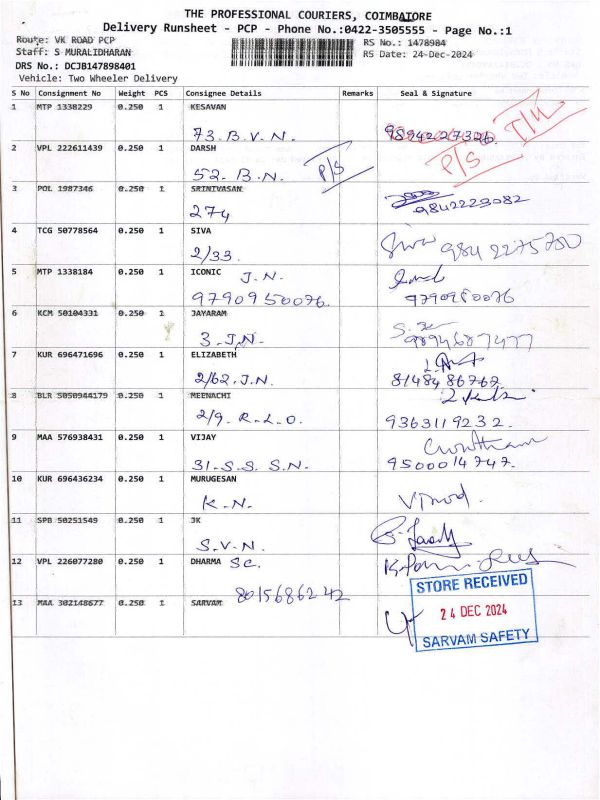 THE PROFESSIONAL COURIERS, COIMBATORE
Delivery Runsheet - PCP - Phone No.:0422-3505555 - Page No.:1
Route: VK ROAD PCP
RS No.: 1478984
Staff: S MURALIDHARAN
RS Date: 24-Dec-2024
DRS No.: DCJB147898401
Vehicle: Two Wheeler Delivery
S No Consignment No Weight PCS Consignee Details Remarks Seal & Signature
1 MTP 1338229 0.250 1 KESAVAN
73. B.V.N. 9894227326
2 VPL 222611439 0.250 1 DARSH
52. B.N. P/S P/S
3 POL 1987346 0.250 1 SRINIVASAN
274 9842223082
4 TCG 50778564 0.250 1 SIVA
2/33. Siva 9842275700
5 MTP 1338184 0.250 1 ICONIC J.N.
9790950076. 9790950076
6 KCM 50104331 0.250 1 JAYARAM
3. J.N. 9894687477
7 KUR 696471696 0.250 1 ELIZABETH
2/62. J.N. 8148486767.
8 BLR 5050944179 0.250 1 MEENACHI
2/9. R.L.O. 9363119232.
9 MAA 576938431 0.250 1 VIJAY
31-S.S. S.N. 9500014747.
10 KUR 696436234 0.250 1 MURUGESAN
K.N. Vinod.
11 SPB 50251549 0.250 1 JK
S.V.N.
12 VPL 226077280 0.250 1 DHARMA S.C.
8015686242
13 MAA 302148677 0.250 1 SARVAM
STORE RECEIVED
24 DEC 2024
SARVAM SAFETY